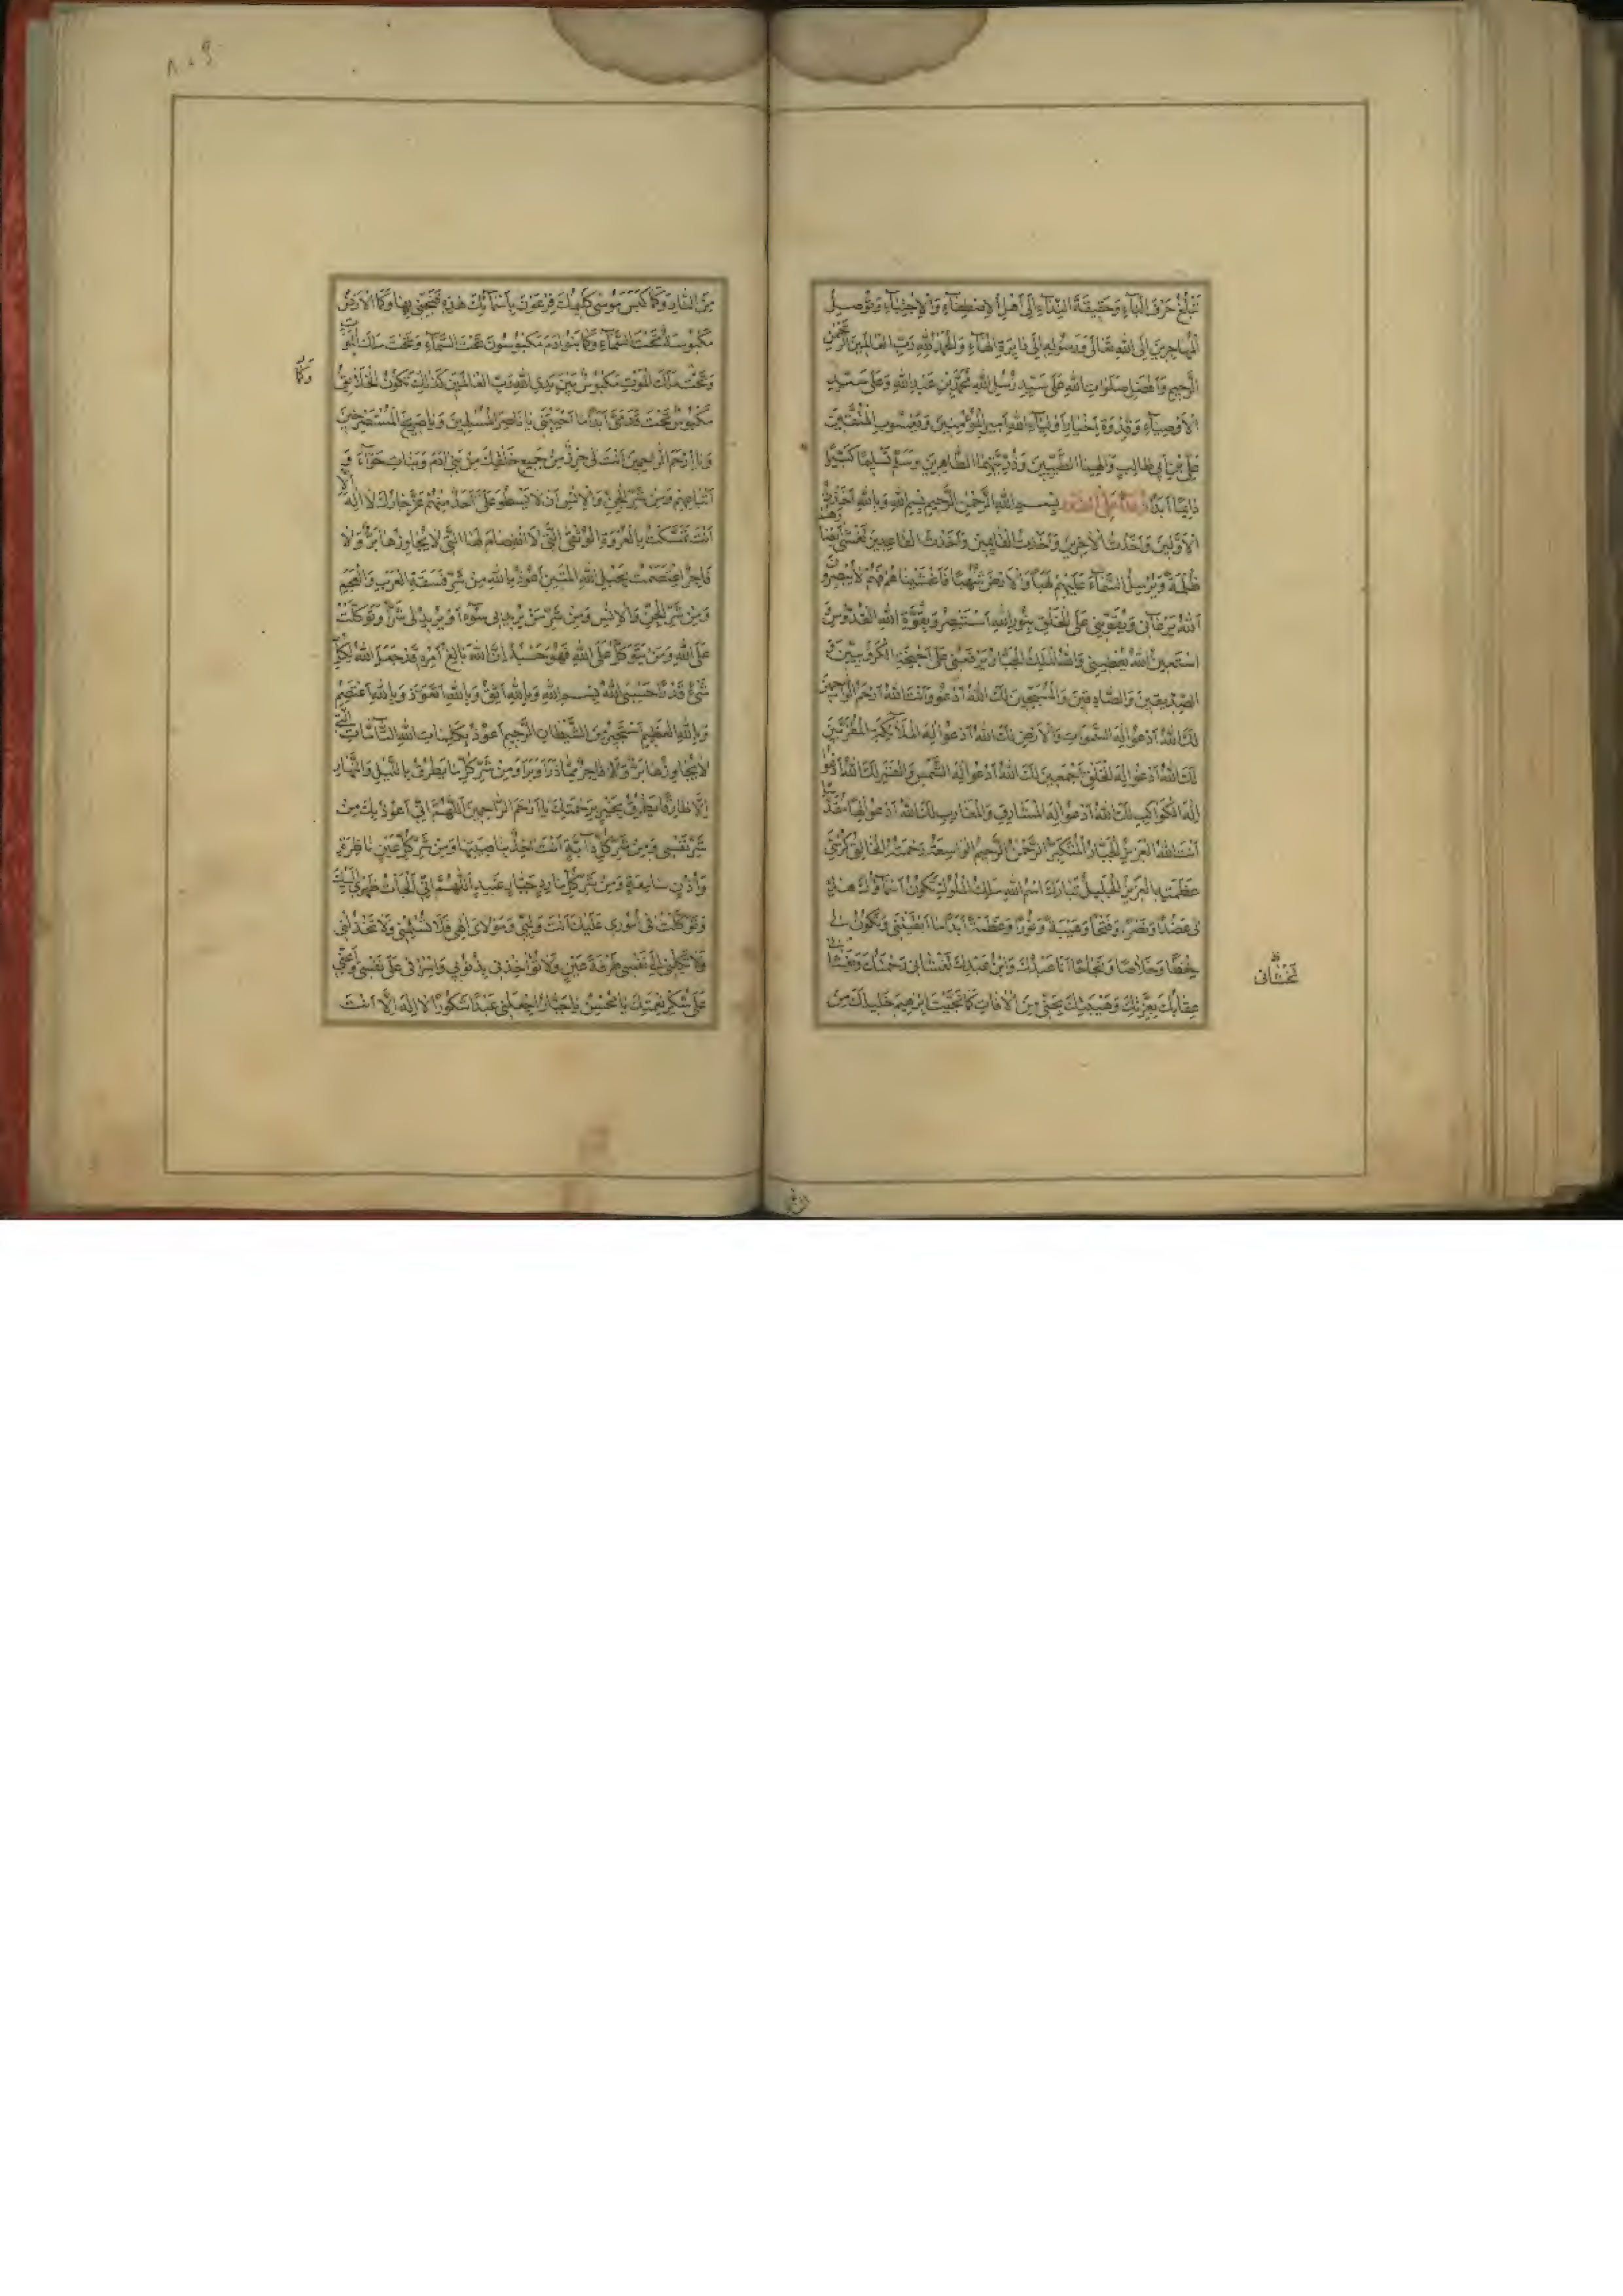 تَبْلُغُ حَرْقَ الْبَآءِ وَحَقِيقَةَ النِّدَآءِ اِلَى اَهْلِ الْاِصْطِفَآءِ وَالْاِجْتِبَآءِ وَتُوصِيلُ
الْمُهَاجِرِينَ اِلَى اللهِ تَعَالٰى وَرَسُولِهِ اِلَى الْهَآءِ وَالْحَمْدُ لِلّٰهِ رَبِّ الْعَالَمِينَ الرَّحْمٰنِ
الرَّحِيمِ وَاَفْضَلِ صَلَوَاتِ اللهِ عَلٰى سَيِّدِ رُسُلِ اللهِ مُحَمَّدِ بْنِ عَبْدِ اللهِ وَعَلٰى سَيِّدِ
الْاَوْصِيَآءِ وَقُدْوَةِ اَخْيَارِ اَوْلِيَآءِ اللهِ اَمِيرِ الْمُؤْمِنِينَ وَيَعْسُوبِ الْمُتَّقِينَ
عَلِيِّ بْنِ اَبِي طَالِبٍ وَاٰلِهِمَا الطَّيِّبِينَ وَذُرِّيَّتِهِمَا الطَّاهِرِينَ وَسَلَّمَ تَسْلِيمًا كَثِيرًا
دَائِمًا اَبَدًا بِسْمِ اللهِ الرَّحْمٰنِ الرَّحِيمِ بِسْمِ اللهِ وَبِاللهِ اَخَذْتُ
الْاَوَّلِينَ وَاَخَذْتُ الْاٰخِرِينَ وَاَخَذْتُ الْقَائِمِينَ وَاَخَذْتُ الْقَاعِدِينَ تَغْشٰى بَعْضُهَا
ظُلْمَةٌ وَيُرْسِلُ السَّمَآءَ عَلَيْهِمْ لَهَبًا وَالْاَرْضَ شُهُبًا فَاَغْشَيْنَاهُمْ فَهُمْ لَا يُبْصِرُونَ
اَللهُ يَرْعَانِي وَيُقَوِّينِي عَلَى الْخَلْقِ بِنُورِ اللهِ اَسْتَبْصِرُ وَبِقُوَّةِ اللهِ الْقُدُّوسِ
اَسْتَعِينُ اَللهُ يُعْطِينِي وَاللهُ الْمَلِكُ الْجَبَّارُ يَرْفَعُنِي عَلٰى اَجْنِحَةِ الْكَرُوبِيِّينَ
الصِّدِّيقِينَ وَالصَّادِقِينَ وَالْمُسَبِّحِينَ لَكَ اللهُ اَدْعُو وَاَنْتَ اللهُ اَرْحَمُ الرَّاحِمِينَ
لَكَ اللهُ اَدْعُو اِلٰهَ السَّمٰوَاتِ وَالْاَرْضِ لَكَ اللهُ اَدْعُو اِلٰهَ الْمَلَآئِكَةِ الْمُقَرَّبِينَ
لَكَ اللهُ اَدْعُو اِلٰهَ الْخَلْقِ اَجْمَعِينَ لَكَ اللهُ اَدْعُو اِلٰهَ الشَّمْسِ وَالْقَمَرِ لَكَ اللهُ اَدْعُو
اِلٰهَ الْكَوَاكِبِ لَكَ اللهُ اَدْعُو اِلٰهَ الْمَشَارِقِ وَالْمَغَارِبِ لَكَ اللهُ اَدْعُو
اَنْتَ اللهُ الْعَزِيزُ الْجَبَّارُ الْمُتَكَبِّرُ الرَّحْمٰنُ الرَّحِيمُ الْوَاسِعَةُ رَحْمَتُهُ الْخَالِقُ
عَظَمَتِهِ الْعَزِيزُ الْجَلِيلُ تَبَارَكَ اسْمُ اللهِ مَلِكُ الْمُلُوكِ تَكُونُ اَسْمَآؤُكَ هٰذِهِ
لِي عَضُدًا وَنَصْرًا وَفَتْحًا وَهَيْبَةً وَنُورًا وَعَظَمَةً اَبَدًا مَا اَبْقَيْتَنِي وَتَكُونُ لِي
حِفْظًا وَخَلَاصًا وَنَجَاحًا اَنَا عَبْدُكَ وَابْنُ عَبْدِكَ تَغْشَانِي رَحْمَتُكَ
تَغْشَانِي
عِقَابُكَ بِعِزَّتِكَ وَهَيْبَتِكَ نَجِّنِي مِنَ الْاٰفَاتِ كَمَا نَجَّيْتَ اِبْرٰهِيمَ خَلِيلَكَ مِنَ
٨٠٩
مِنَ النَّارِ وَكَمَا كَبَسَ مُوسٰى كَلِيمُكَ فِرْعَوْنَ بِاَسْمَآئِكَ هٰذِهِ فَنَجِّنِي بِهَا وَكَمَا الْاَرْضُ
مَكْبُوسَةٌ تَحْتَ السَّمَآءِ وَكَمَا بَنُو اٰدَمَ مَكْبُوسُونَ تَحْتَ السَّمَآءِ وَتَحْتَ مَلَكِ الْمَوْتِ
وَكَمَا
وَتَحْتَ مَلَكِ الْمَوْتِ مَكْبُوسٌ بَيْنَ يَدَيِ اللهِ رَبِّ الْعَالَمِينَ كَذٰلِكَ تَكُونُ الْخَلَائِقُ
مَكْبُوسٌ تَحْتَ قَدَمَيَّ اَبَدًا مَا اَحْيَيْتَنِي يَا نَاصِرَ الْمُسْلِمِينَ وَيَا صَرِيخَ الْمُسْتَصْرِخِينَ
وَيَا اَرْحَمَ الرَّاحِمِينَ اَنْتَ لِي حِرْزٌ مِنْ جَمِيعِ خَلْقِكَ مِنْ بَنِي اٰدَمَ وَبَنَاتِ حَوَّآءَ وَ
اَتْبَاعِهِمْ وَمِنْ شَرِّ الْجِنِّ وَالْاِنْسِ اَنْ لَا يَسْطُوَ عَلَيَّ اَحَدٌ مِنْهُمْ عَزَّ جَارُكَ لَا اِلٰهَ اِلَّا
اَنْتَ تَمَسَّكْتُ بِالْعُرْوَةِ الْوُثْقٰى الَّتِي لَا انْفِصَامَ لَهَا الَّتِي لَا يُجَاوِزُهَا بَرٌّ وَلَا
فَاجِرٌ اعْتَصَمْتُ بِحَبْلِ اللهِ الْمَتِينِ اَعُوذُ بِاللهِ مِنْ شَرِّ فَسَقَةِ الْعَرَبِ وَالْعَجَمِ
وَمِنْ شَرِّ الْجِنِّ وَالْاِنْسِ وَمِنْ شَرِّ مَنْ يُرِيدُ بِي سُوٓءًا اَوْ يُرِيدُ لِي شَرًّا وَتَوَكَّلْتُ
عَلَى اللهِ وَمَنْ يَتَوَكَّلْ عَلَى اللهِ فَهُوَ حَسْبُهُ اِنَّ اللهَ بَالِغُ اَمْرِهِ قَدْ جَعَلَ اللهُ لِكُلِّ
شَيْءٍ قَدْرًا حَسْبِيَ اللهُ بِسْمِ اللهِ وَبِاللهِ اَثِقُ وَبِاللهِ اَتَعَوَّذُ وَبِاللهِ اَعْتَصِمُ
وَبِاللهِ الْعَظِيمِ اَسْتَجِيرُ مِنَ الشَّيْطَانِ الرَّجِيمِ اَعُوذُ بِكَلِمَاتِ اللهِ التَّآمَّاتِ الَّتِي
لَا يُجَاوِزُهَا بَرٌّ وَلَا فَاجِرٌ مِمَّا ذَرَاَ وَبَرَاَ وَمِنْ شَرِّ كُلِّ مَا يَطْرُقُ بِاللَّيْلِ وَالنَّهَارِ
اِلَّا طَارِقًا يَطْرُقُ بِخَيْرٍ بِرَحْمَتِكَ يَا اَرْحَمَ الرَّاحِمِينَ اَللّٰهُمَّ اِنِّي اَعُوذُ بِكَ مِنْ
شَرِّ نَفْسِي وَمِنْ شَرِّ كُلِّ دَآبَّةٍ اَنْتَ اٰخِذٌ بِنَاصِيَتِهَا وَمِنْ شَرِّ كُلِّ عَيْنٍ نَاظِرَةٍ
وَاُذُنٍ سَامِعَةٍ وَمِنْ شَرِّ كُلِّ مَارِدٍ جَبَّارٍ عَنِيدٍ اَللّٰهُمَّ اِنِّي اَلْجَاْتُ ظَهْرِي اِلَيْكَ
وَتَوَكَّلْتُ فِي اُمُورِي عَلَيْكَ اَنْتَ وَلِيِّي وَمَوْلَايَ اِلٰهِي فَلَا تُسْلِمْنِي وَلَا تَخْذُلْنِي
وَلَا تَكِلْنِي اِلٰى نَفْسِي طَرْفَةَ عَيْنٍ وَلَا تُؤَاخِذْنِي بِذُنُوبِي وَاِسْرَافِي عَلٰى نَفْسِي وَاَعِنِّي
عَلٰى شُكْرِ نِعْمَتِكَ يَا مُحْسِنُ يَا جَبَّارُ اجْعَلْنِي عَبْدًا شَكُورًا لَا اِلٰهَ اِلَّا اَنْتَ